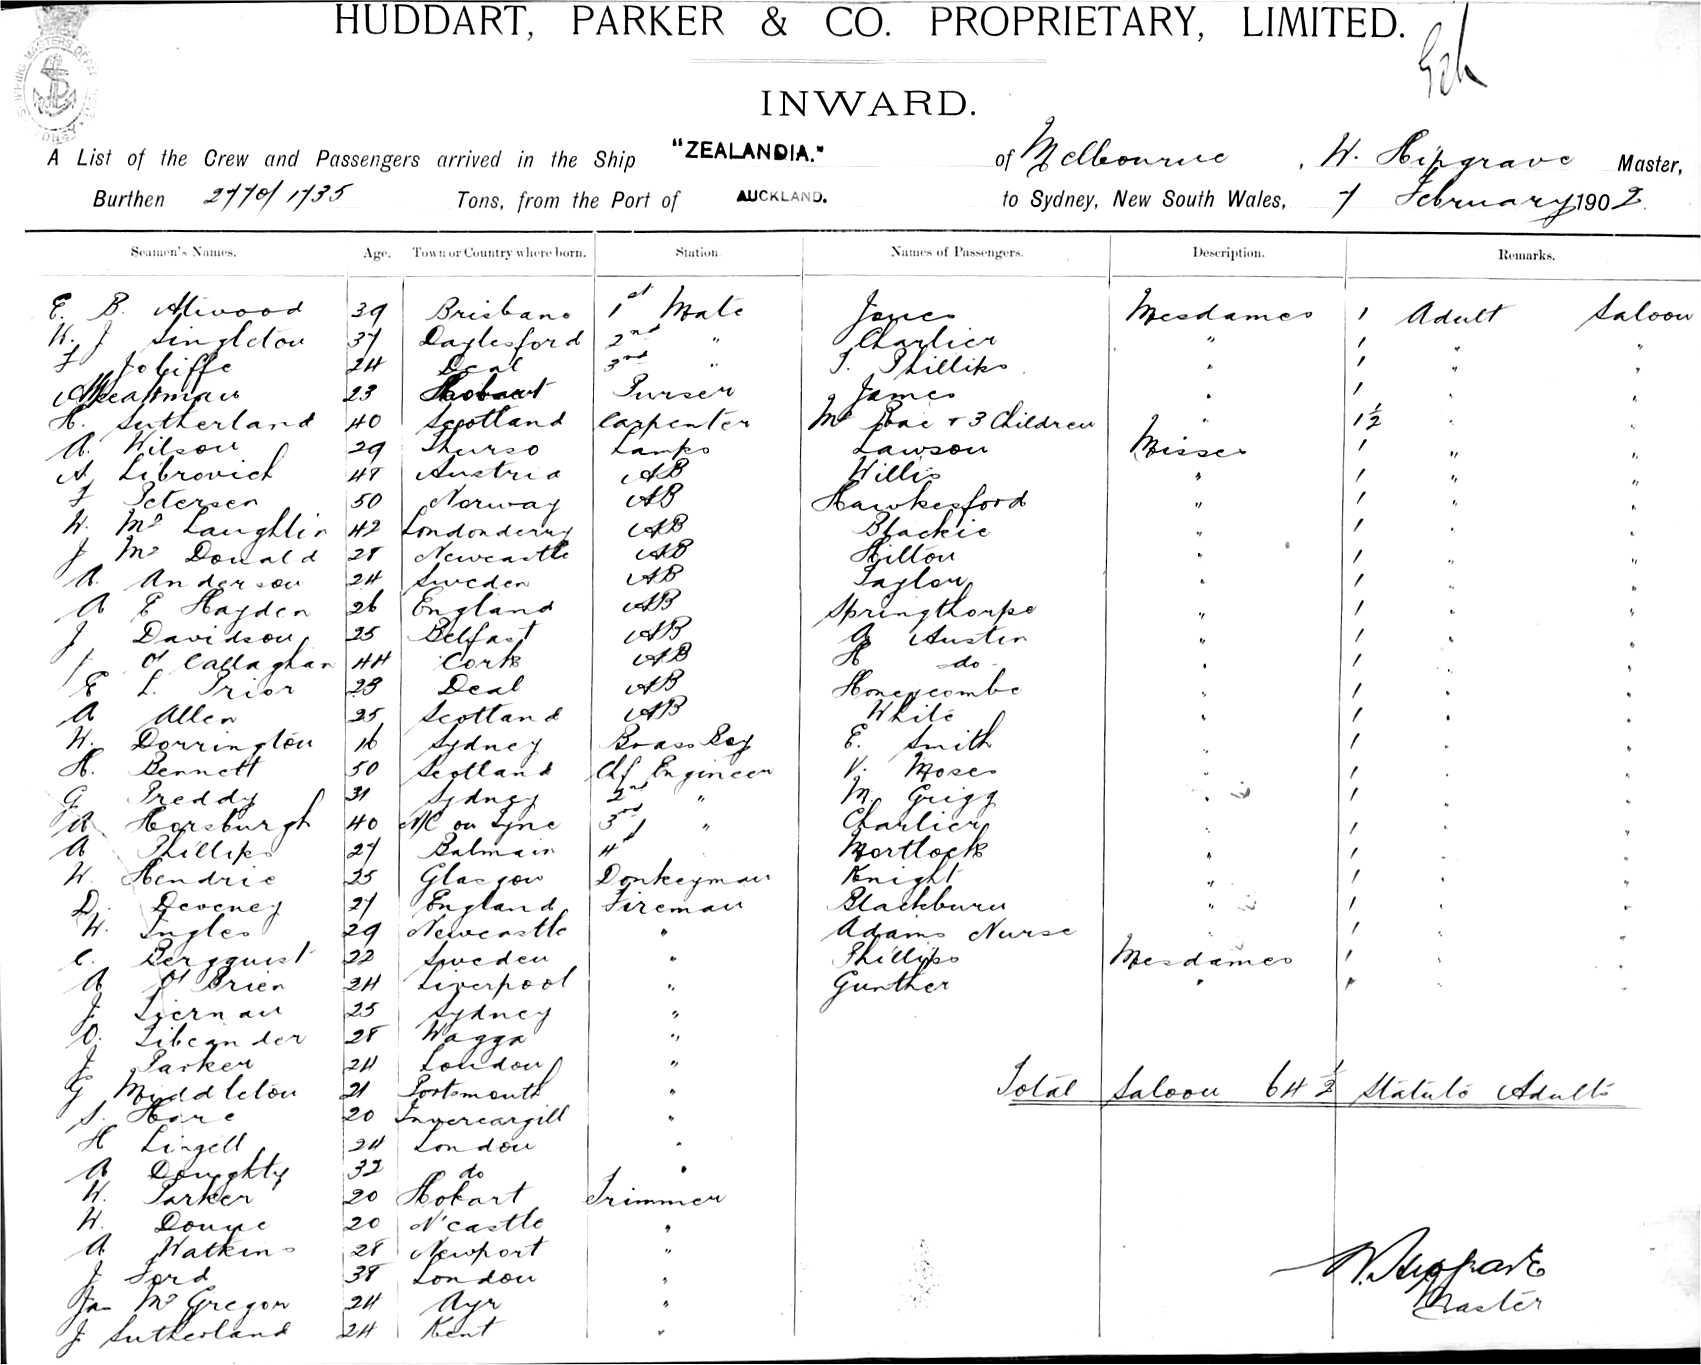 HUDDART, PARKER & CO. PROPRIETARY, LIMITED.
INWARD.
A List of the Crew and Passengers arrived in the Ship "ZEALANDIA." of Melbourne, W. Hipgrave Master,
Burthen 2770/1735 Tons, from the Port of AUCKLAND. to Sydney, New South Wales, 7 February 1902.
Seamen's Names. Age. Town or Country where born. Station Names of Passengers. Description. Remarks.
E. B. Atwood 39 Brisbane 1st Mate Jones Mesdames 1 Adult Saloon
W. J Singleton 37 Daylesford 2nd " Charlier " 1 " "
F Joliffe 24 Deal 3rd " T. Phillips " 1 " "
23 Hobart Purser James " 1 " "
H. Sutherland 40 Scotland Carpenter Mc Rae + 3 Children " 1½ " "
A. Wilson 29 Thurso Lamps Lawson Misses 1 " "
A. Librovich 48 Austria AB Willis " 1 " "
F Petersen 50 Norway AB Hawkesford " 1 " "
W. Mc Laughlin 42 Londonderry AB Blackie " 1 " "
J Mc Donald 28 Newcastle AB Hilton " 1 " "
A. Anderson 24 Sweden AB Taylor " 1 " "
A E Hayden 26 England AB Springthorpe " 1 " "
J Davidson 25 Belfast AB G Austin " 1 " "
O'Callaghan 44 Cork AB H do " 1 " "
E L. Prior 23 Deal AB Honeycombe " 1 " "
A Allen 25 Scotland AB White " 1 " "
W. Dorrington 16 Sydney Brass Boy E. Smith " 1 " "
H. Bennett 50 Scotland Chf Engineer V. Moses " 1 " "
G Preddy 31 Sydney 2nd " M. Grigg " 1 " "
A Horsburgh 40 N/C on Tyne 3rd " Charlier " 1 " "
A Phillips 27 Balmain 4th Mortlock " 1 " "
W. Hendrie 25 Glasgow Donkeyman Knight " 1 " "
D. Deveney 27 England Fireman Blackburn " 1 " "
W. Ingles 29 Newcastle " Adams Nurse " 1 " "
C. Bergquist 22 Sweden " Phillips Mesdames 1 " "
A O'Brien 24 Liverpool " Gunther " " " "
J. Tiernan 25 Sydney "
O. 28 Wagga "
J Parker 24 London "
G Middleton 21 Portsmouth "
S. Hore 20 Invercargill "
Total Saloon 64½ Statute Adults
H Lingell 24 London "
A Doughty 32 do "
W. Parker 20 Hobart Trimmer
W. 20 N'castle "
A Watkins 28 Newport "
J Ford 38 London "
Jas McGregor 24 Ayr "
J Sutherland 24 Kent "
W. Hipgrave
Master